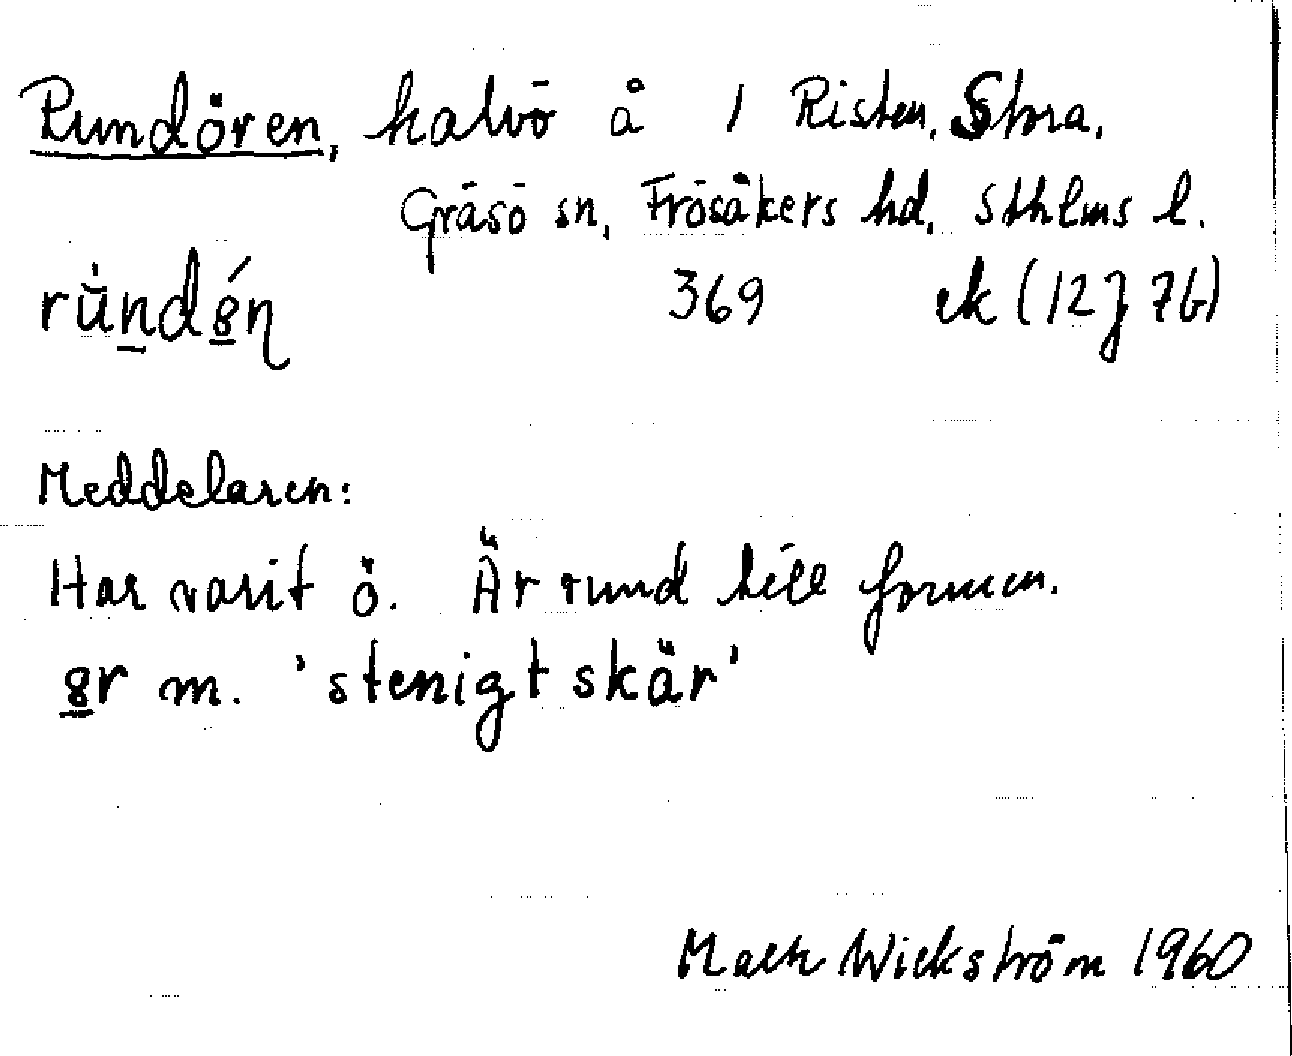 Rundören, halvö å 1 Risten, Stora,
Gräsö sn, Frösåkers hd, Sthlms l.
rùndǿn 369 ek (12J 7b)
Meddelaren:
Har varit ö. Är rund till formen.
ør m. 'stenigt skär'
Wickström 1960